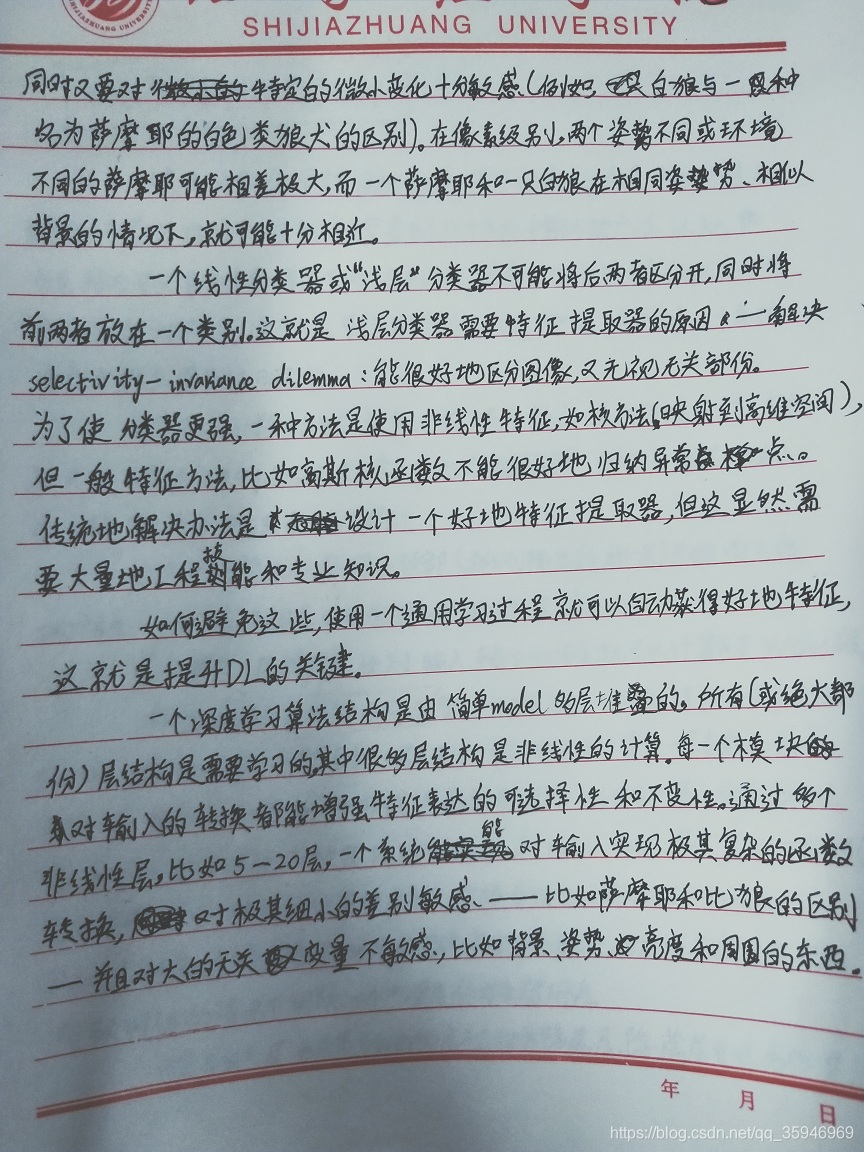 SHIJIAZHUANG UNIVERSITY
SHIJIAZHUANG UNIVERSITY
同时又要对特定的微小变化十分敏感(例如,白狼与一种
名为萨摩耶的白色类狼犬的区别)。在像素级别,两个姿势不同或环境
不同的萨摩耶可能相差极大,而一个萨摩耶和一只白狼在相同姿势、相似
背景的情况下,就可能十分相近。
一个线性分类器或“浅层”分类器不可能将后两者区分开,同时将
前两者放在一个类别。这就是浅层分类器需要特征提取器的原因——解决
selectivity-invariance dilemma:能很好地区分图像,又无视无关部份。
为了使分类器更强,一种方法是使用非线性特征,如核方法(映射到高维空间),
但一般特征方法,比如高斯核函数不能很好地归纳异常点。
传统地解决办法是设计一个好地特征提取器,但这显然需
要大量地工程技能和专业知识。
如何避免这些,使用一个通用学习过程就可以自动获得好地特征,
这就是提升DL的关键。
一个深度学习算法结构是由简单model多层堆叠的。所有(或绝大部
份)层结构是需要学习的,其中很多层结构是非线性的计算。每一个模块
对输入的转换都能增强特征表达的可选择性和不变性。通过多个
非线性层,比如5-20层,一个系统能对输入实现极其复杂的函数
转换,对极其细小的差别敏感——比如萨摩耶和比狼的区别
—并且对大的无关变量不敏感,比如背景、姿势、亮度和周围的东西。
年 月 日
https://blog.csdn.net/qq_35946969